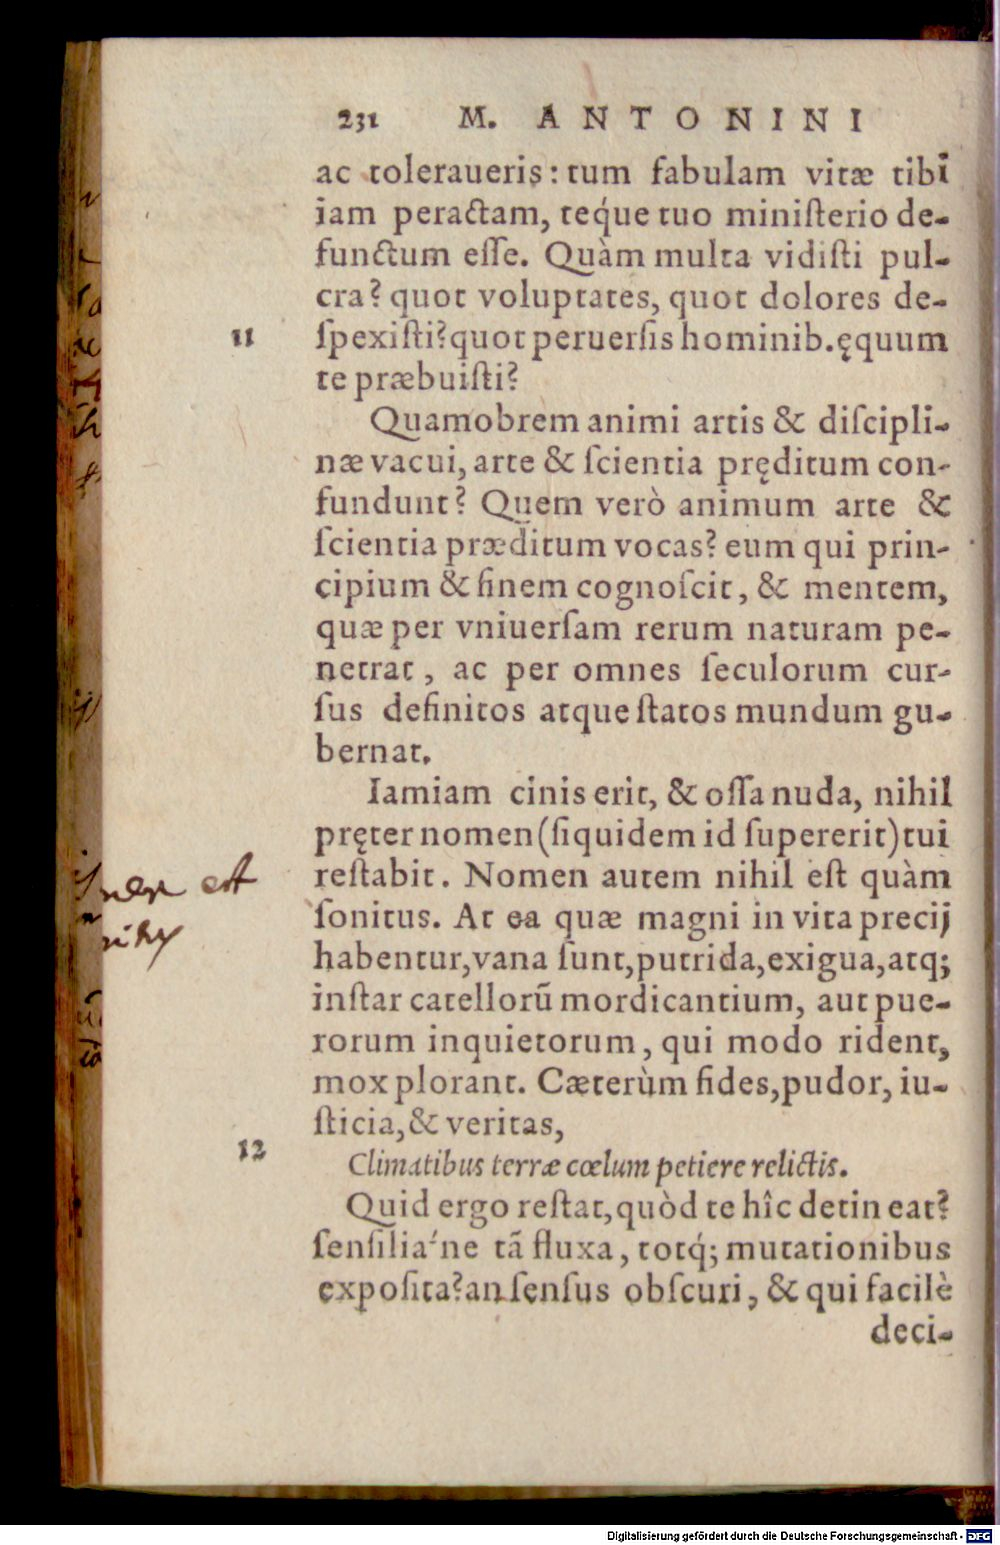 231 M. ANTONINI
ac toleraueris: tum fabulam vitæ tibi
iam peractam, teq́ue tuo ministerio de-
functum esse. Quàm multa vidisti pul-
cra? quot voluptates, quot dolores de-
11 spexisti? quot peruersis hominib. ęquum
te præbuisti?
Quamobrem animi artis & discipli-
næ vacui, arte & scientia pręditum con-
fundunt? Quem verò animum arte &
scientia præditum vocas? eum qui prin-
cipium & finem cognoscit, & mentem,
quæ per vniuersam rerum naturam pe-
netrat, ac per omnes seculorum cur-
sus definitos atque statos mundum gu-
bernat.
Iamiam cinis erit, & ossa nuda, nihil
pręter nomen (siquidem id supererit) tui
restabit. Nomen autem nihil est quàm
sonitus. At ea quæ magni in vita precij
habentur, vana sunt, putrida, exigua, atq;
instar catellorũ mordicantium, aut pue-
rorum inquietorum, qui modo rident,
mox plorant. Cæterùm fides, pudor, iu-
sticia, & veritas,
12 Climatibus terræ cœlum petiere relictis.
Quid ergo restat, quòd te hîc detineat?
sensilia´ne tã fluxa, totq́; mutationibus
exposita? an sensus obscuri, & qui facilè
deci-
est
Digitalisierung gefördert durch die Deutsche Forschungsgemeinschaft - DFG